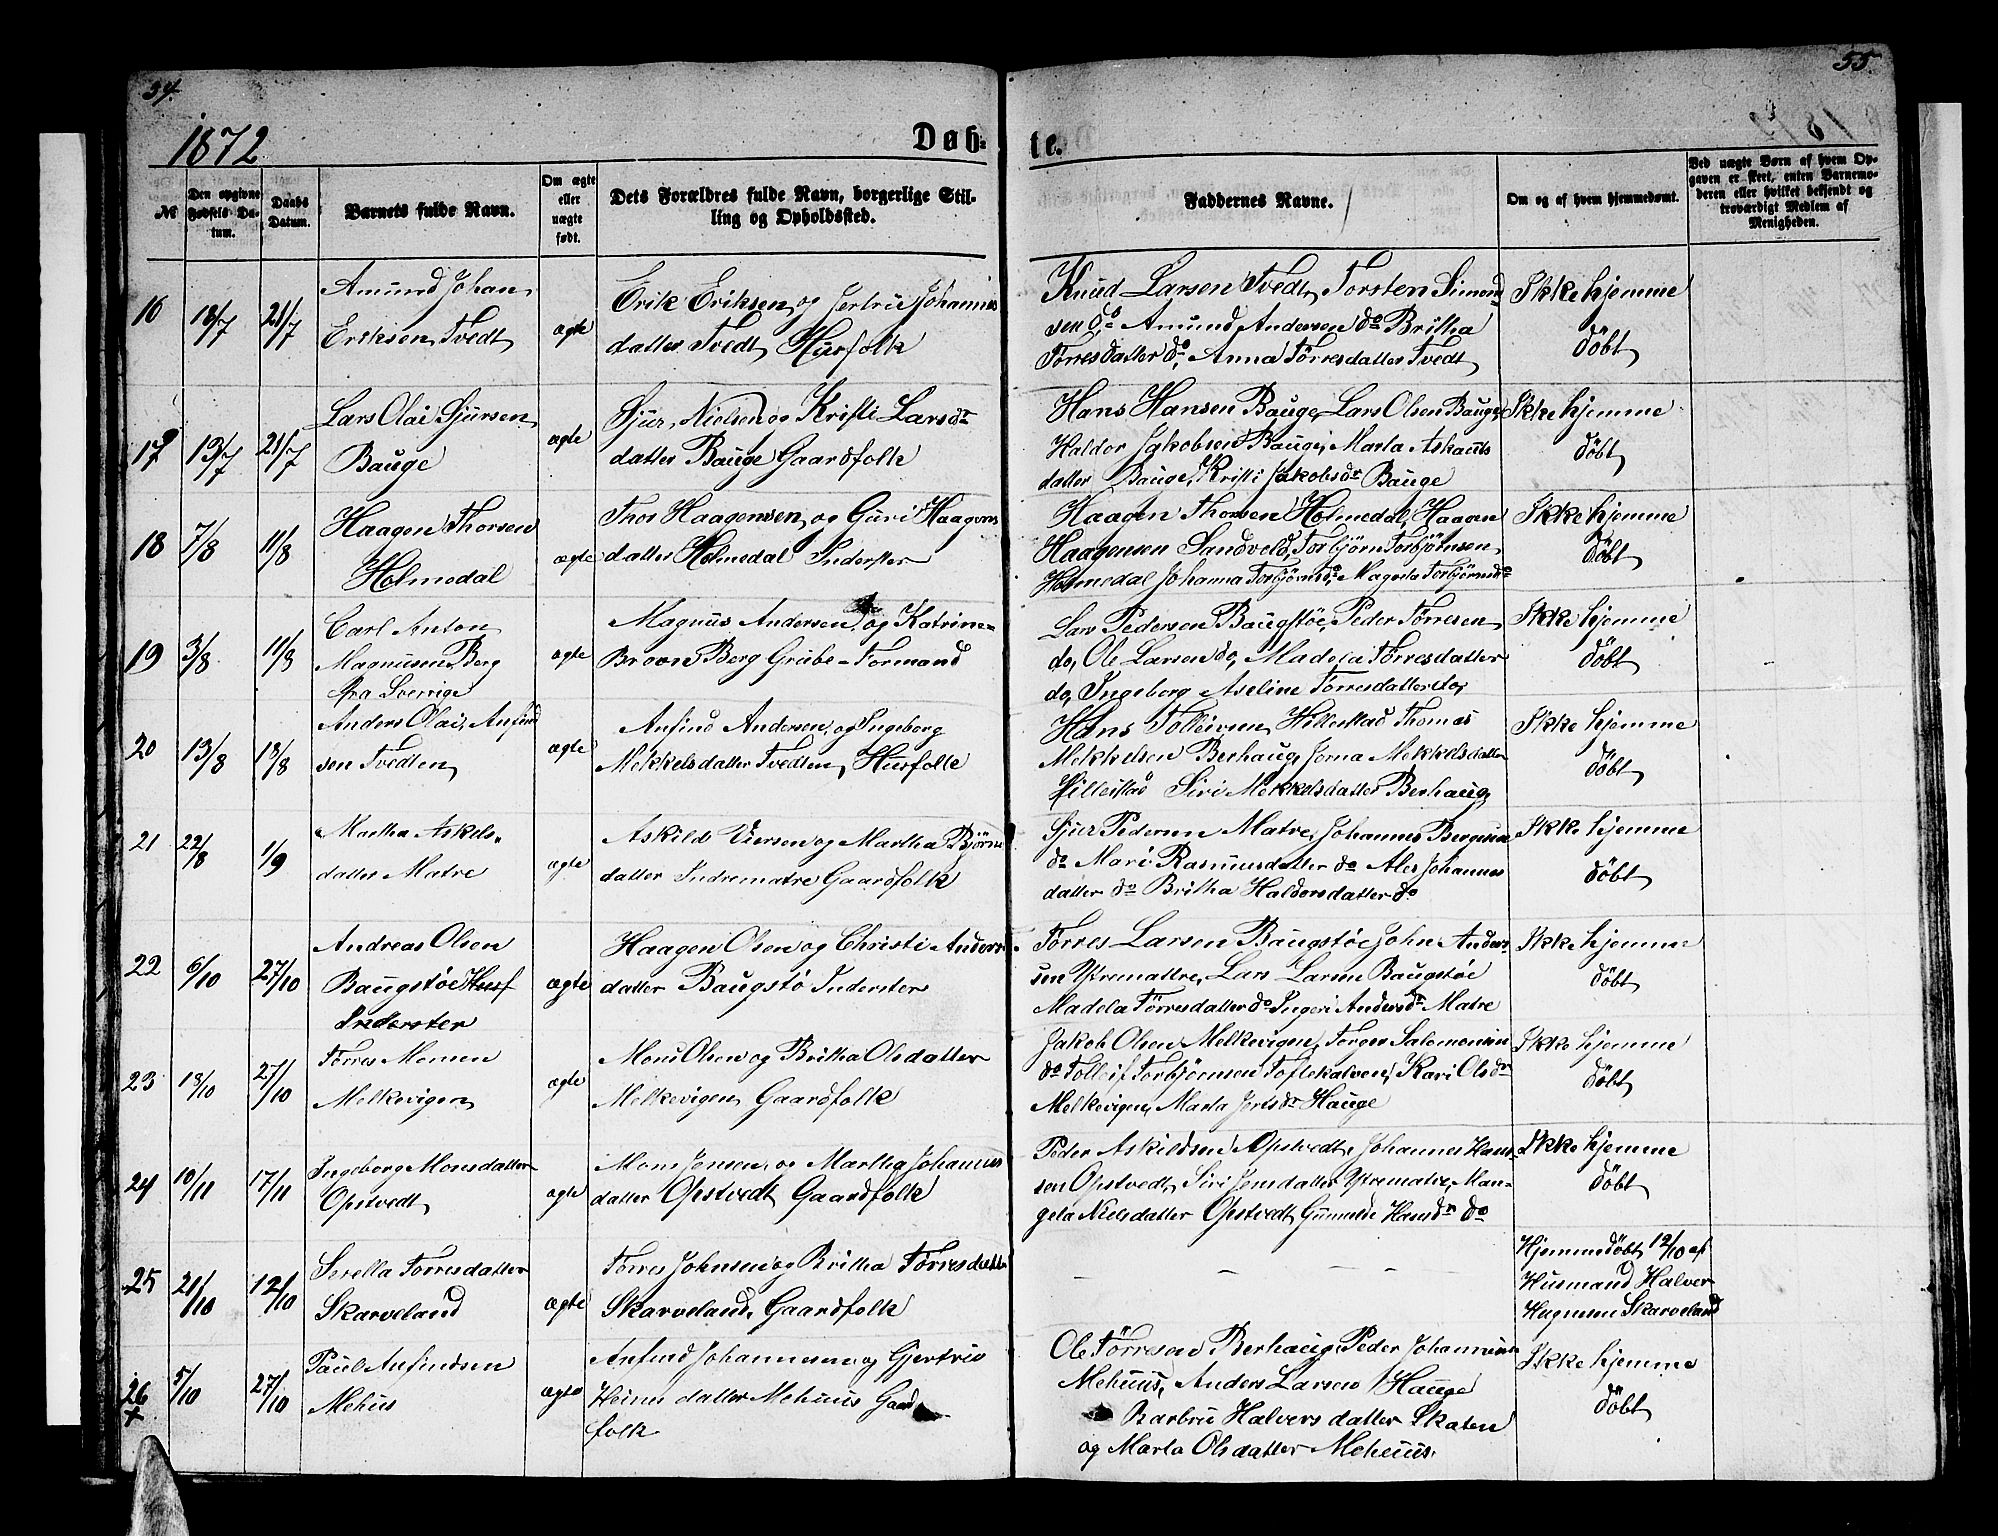 54.
55
1872
Døb-
te.
№
Den opgivne Fødsels Da-
tum.
Daabs
Datum.
Barnets fulde Navn.
Om ægte
eller
uægte
født.
Dets Forældres fulde Navn, borgerlige Stil-
ling og Opholdssted.
Faddernes Navne.
Om og af hvem hjemmedøbt.
Ved uægte Børn af hvem Op-
gaven er skeet, enten Barnemo-
deren eller hvilket bekjendt og
troværdigt Medlem af
Menigheden.
16
18/7
21/7
Amund Johan
Eriksen Tvedt
ægte
Erik Eriksen og Jertrue Johannes
datter Tvedt Husfolk
Knud Larsen Tvedt, Torsten Simond
sen do Amund Andersen do Britha
Tørresdatter do, Anna Tørresdatter Tvedt
Ikke hjemme
døbt
17
13/7
21/7
Lars Olai Sjursen
Bauge
ægte
Sjur Nielsen og Kristi Larsdr
datter Bauge Gaardfolk
Hans Hansen Bauge, Lars Olsen Bauge
Haldor Jakobsen Bauge, Marta Askauts
datter Bauge, Kristi Jakobsdr Bauge
Ikke hjemme
døbt
18
7/8
11/8
Haagen Thorsen
Holmedal
ægte
Thor Haagensen og Guri Haagens
datter Holmedal Inderster
Haagen Thorsen Holmedal, Haagen
Haagensen Sandvold, Torbjørn Torbjørnsen
Holmedal Johanna Torbjørnsd, Magela Torbjørnsdr
Ikke hjemme
døbt
19
3/8
11/8
Carl Anton
Magnusen Berg
fra Sverrige
ægte
Magnus Andersen og Katrine
Broon Berg Grube-Formand
Lars Pedersen Baugstøe, Peder Tørresen
do, Ole Larsen do, Madela Tørresdatter
do, Ingeborg Aseline Tørresdatter do,
Ikke hjemme
døbt
20
13/8
18/8
Anders Olai Anfind
sen Tvedten
ægte
Anfind Andersen og Ingeborg
Mekkelsdatter Tvedten, Husfolk
Hans Tolleivsen Hillestad Thomas
Mekkelsen Berhaug, Jorna Mekkelsdatter
Hillestad Siri Mekkelsdatter Berhaug
Ikke hjemme
døbt
21
22/8
1/9
Martha Askels-
datter Matre
ægte
Askild Iversen og Martha Bjørns
datter Indrematre Gaardfolk
Sjur Pedersen Matre, Johannes Bergesen
do Mari Rasmusdatter do Ales Johannes
datter do Britha Haldorsdatter do
Ikke hjemme
døbt
22
6/10
27/10
Andreas Olsen
Baugstøe Husf
Inderster
ægte
Haagen Olsen og Christi Anders
datter Baugstø Inderster
Tørres Larsen Baugstøe John Ander-
sen Ytremattre, Lars Larsen Baugstøe
Madela Tørresdatter do Ingeri Andersdr Matre
Ikke hjemme
døbt
23
13/10
27/10
Tørres Monsen
Melkevigen
ægte
Mons Olsen og Britha Olsdatter
Melkevigen Gaardfolk
Jakob Olsen Melkevigen, Torger Salomonsen
do Tolleif Torbjørnsen Toftekalven, Kari Olsdr
Melkevigen, Marta Jertsdr Hauge
Ikke hjemme
døbt
24
10/11
17/11
Ingeborg Monsdatter
Opstvedt
ægte
Mons Jensen og Martha Johannes
datter Opstvedt Gaardfolk
Peder Askildsen Opstvedt, Johannes Han-
sen Opstvedt, Siri Jensdatter Ytrematre, Man-
gela Nielsdatter Opstvedt Gunnilde Hansdr do
Ikke hjemme
døbt
25
21/10
12/10
Serella Tørresdatter
Skarveland
ægte
Tørres Johnsen og Britha Tørresdatter
Skarveland, Gaardfolk
– – – –
Hjemmedøbt 12/10 af
Husmand Halver
Skarveland
26
+
5/10
27/10
Paul Anfindsen
Mehus
ægte
Anfind Johannesen og Gjertrio
datter Mehuus Gaard
folk
Ole Tørresen Berhaug, Peder Johannesen
Mehuus, Anders Larsen Hauge
Barbru Halversdatter Skaten
og Marta Olsdatter Mehuus.
Ikke hjemme
døbt